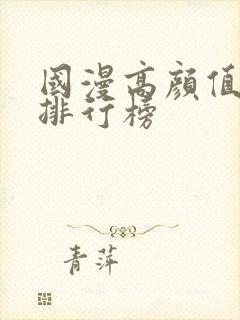 國漫高顔值
排行榜
青萍